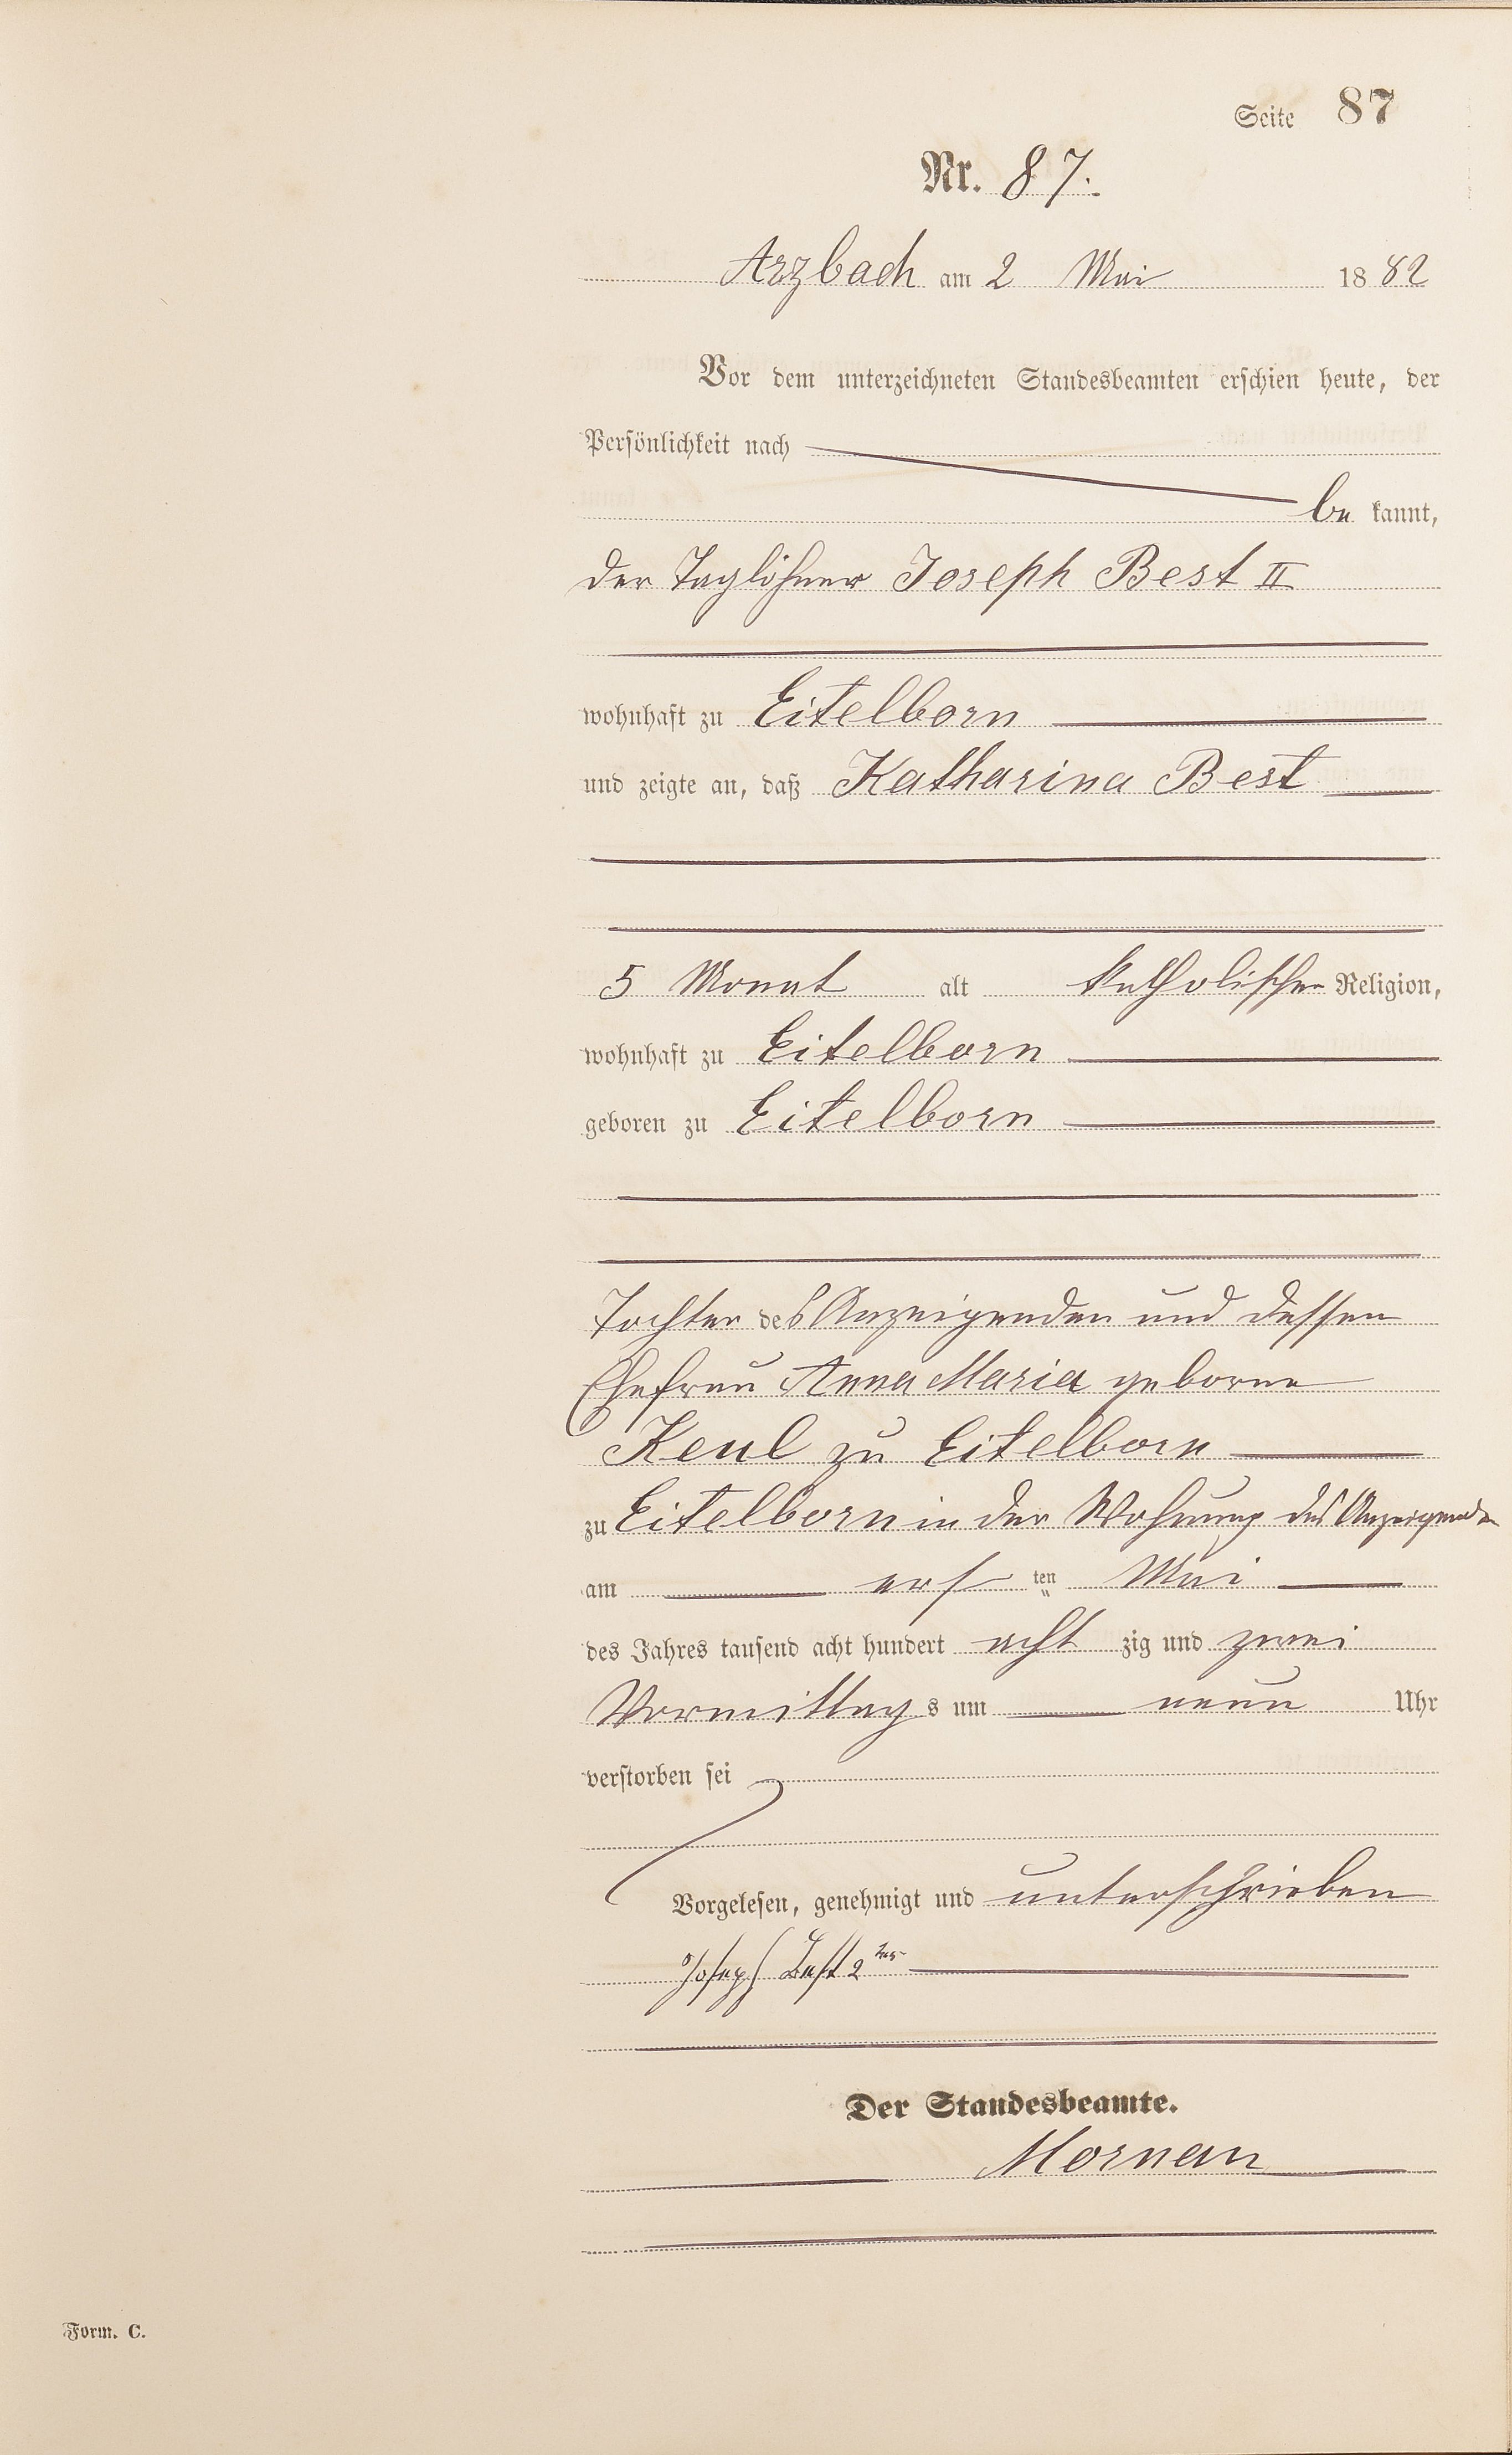 Seite 87
Nr. 87.
Arzbach am 2 Mai 1882
Vor dem unterzeichneten Standesbeamten erschien heute, der
Persönlichkeit nach
be kannt,
der Taglöhner Joseph Best II
wohnhaft zu Eitelborn
und zeigte an, daß Katharina Best
5 Monat alt katholischer Religion,
wohnhaft zu Eitelborn
geboren zu Eitelborn
Tochter des Anzeigenden und dessen
Ehefrau Anna Maria geborne
Keul zu Eitelborn
zu Eitelborn in der Wohnung des Anzeigenden
am ersten Mai
des Jahres tausend acht hundert acht zig und zwei
Vormittags um neun Uhr
verstorben sei
Vorgelesen, genehmigt und unterschrieben
Joseph Best 2ter
Der Standesbeamte.
Form. C.